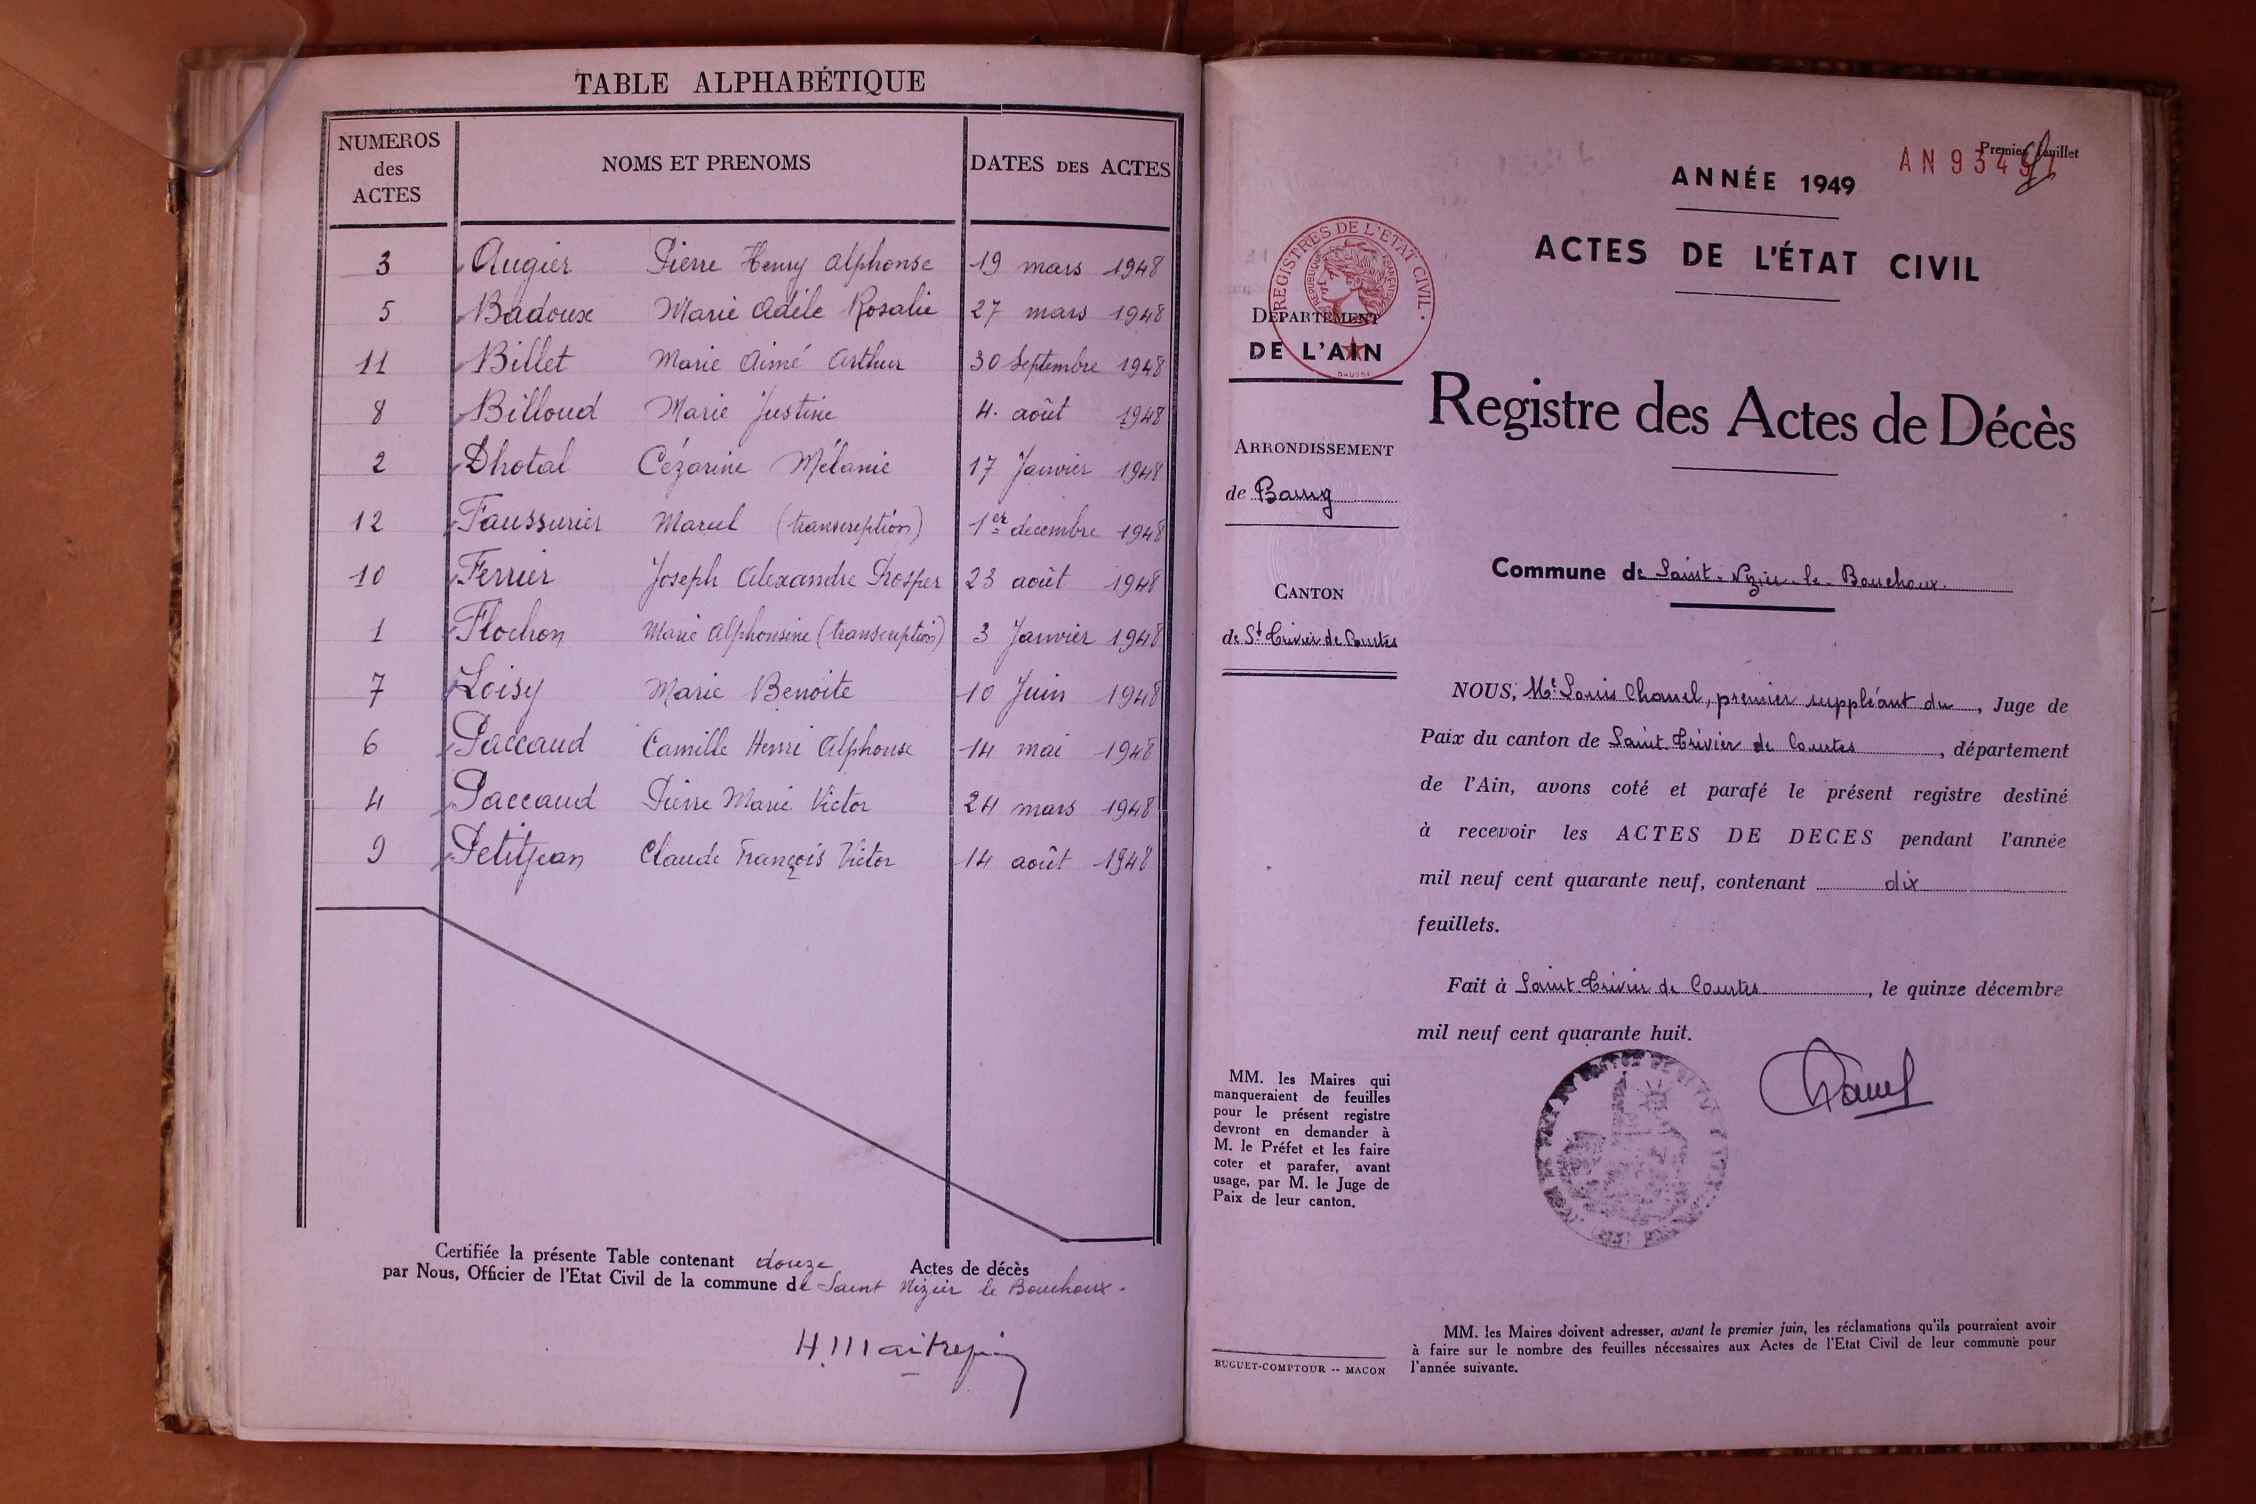 TABLE ALPHABÉTIQUE
NUMEROS des ACTES NOMS ET PRENOMS DATES DES ACTES
3 Augier Pierre Henry Alphonse 19 mars 1948
5 Badoux Marie Adèle Rosalie 27 mars 1948
11 Billet Marie Aimé Arthur 30 Septembre 1948
8 Billoud Marie Justine 4. août 1948
2 Dhotal Cézarine Mélanie 17 Janvier 1948
12 Faussurier Marcel (transcription) 1er décembre 1948
10 Ferrier Joseph Alexandre Prosper 23 août 1948
1 Flochon Marie Alphonsine (transcription) 3 Janvier 1948
7 Loisy Marie Benoite 10 Juin 1948
6 Paccaud Camille Henri Alphonse 14 mai 1948
4 Paccaud Pierre Marie Victor 24 mars 1948
9 Petitjean Claude François Victor 14 août 1948
Certifiée la présente Table contenant douze Actes de décès
par Nous, Officier de l'Etat Civil de la commune de Saint Nizier le Bouchoux.
Premier feuillet
AN 934
ANNÉE 1949
ACTES DE L'ÉTAT CIVIL
REGISTRES DE L'ETAT CIVIL
REPUBLIQUE FRANÇAISE
DÉPARTEMENT
DE L'AIN
Registre des Actes de Décès
ARRONDISSEMENT
de Bourg
Commune de Saint-Nizier-le-Bouchoux.
CANTON
de St Trivier de Courtes
NOUS, Me Louis Chanel, premier suppléant du, Juge de
Paix du canton de Saint-Trivier de Courtes, département
de l'Ain, avons coté et parafé le présent registre destiné
à recevoir les ACTES DE DECES pendant l'année
mil neuf cent quarante neuf, contenant dix
feuillets.
Fait à Saint-Trivier de Courtes, le quinze décembre
mil neuf cent quarante huit.
Chanel
MM. les Maires qui
manqueraient de feuilles
pour le présent registre
devront en demander à
M. le Préfet et les faire
coter et parafer, avant
usage, par M. le Juge de
Paix de leur canton.
BUGUET-COMPTOUR -- MACON
MM. les Maires doivent adresser, avant le premier juin, les réclamations qu'ils pourraient avoir
à faire sur le nombre des feuilles nécessaires aux Actes de l'Etat Civil de leur commune pour
l'année suivante.